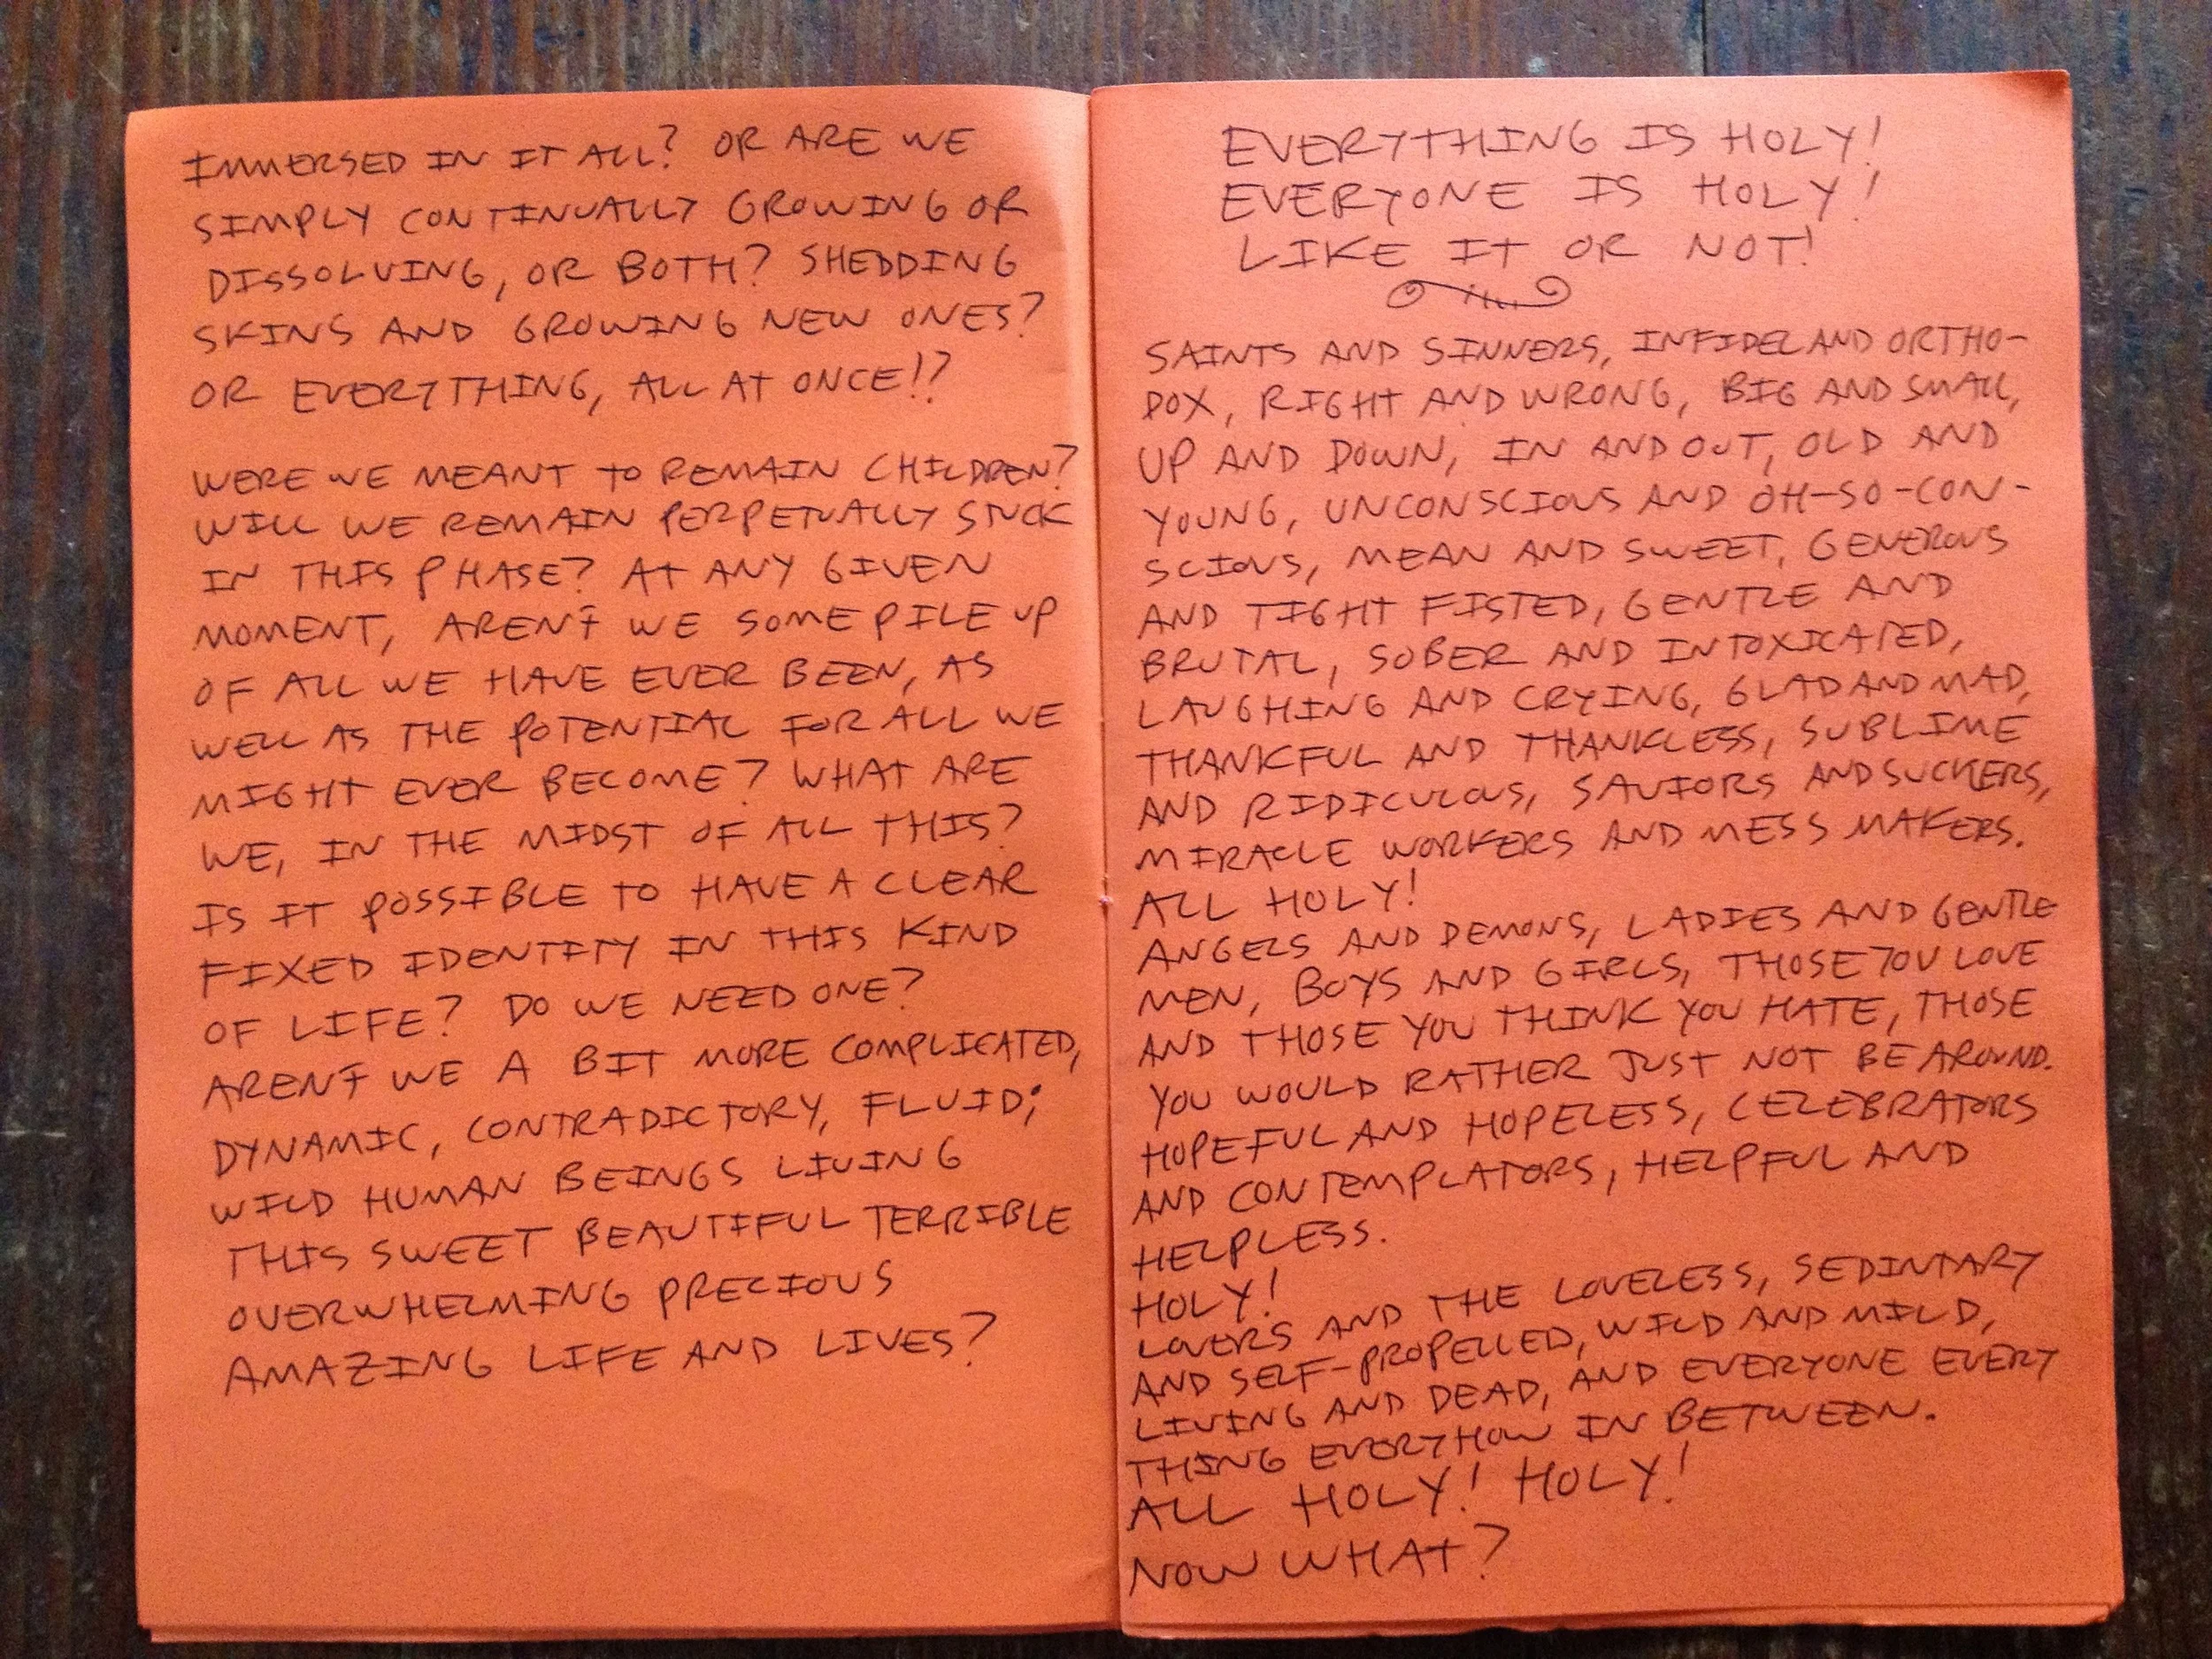 IMMERSED IN IT ALL? OR ARE WE
SIMPLY CONTINUALLY GROWING OR
DISSOLVING, OR BOTH? SHEDDING
SKINS AND GROWING NEW ONES?
OR EVERYTHING, ALL AT ONCE!?
WERE WE MEANT TO REMAIN CHILDREN?
WILL WE REMAIN PERPETUALLY STUCK
IN THIS PHASE? AT ANY GIVEN
MOMENT, AREN'T WE SOME PILE UP
OF ALL WE HAVE EVER BEEN, AS
WELL AS THE POTENTIAL FOR ALL WE
MIGHT EVER BECOME? WHAT ARE
WE, IN THE MIDST OF ALL THIS?
IS IT POSSIBLE TO HAVE A CLEAR
FIXED IDENTITY IN THIS KIND
OF LIFE? DO WE NEED ONE?
AREN'T WE A BIT MORE COMPLICATED,
DYNAMIC, CONTRADICTORY, FLUID;
WILD HUMAN BEINGS LIVING
THIS SWEET BEAUTIFUL TERRIBLE
OVERWHELMING PRECIOUS
AMAZING LIFE AND LIVES?
EVERYTHING IS HOLY!
EVERYONE IS HOLY!
LIKE IT OR NOT!
SAINTS AND SINNERS, INFIDEL AND ORTHO-
DOX, RIGHT AND WRONG, BIG AND SMALL,
UP AND DOWN, IN AND OUT, OLD AND
YOUNG, UNCONSCIOUS AND OH-SO-CON-
SCIOUS, MEAN AND SWEET, GENEROUS
AND TIGHT FISTED, GENTLE AND
BRUTAL, SOBER AND INTOXICATED,
LAUGHING AND CRYING, GLAD AND MAD,
THANKFUL AND THANKLESS, SUBLIME
AND RIDICULOUS, SAVIORS AND SUCKERS,
MIRACLE WORKERS AND MESS MAKERS.
ALL HOLY!
ANGELS AND DEMONS, LADIES AND GENTLE
MEN, BOYS AND GIRLS, THOSE YOU LOVE
AND THOSE YOU THINK YOU HATE, THOSE
YOU WOULD RATHER JUST NOT BE AROUND.
HOPEFUL AND HOPELESS, CELEBRATORS
AND CONTEMPLATORS, HELPFUL AND
HELPLESS.
HOLY!
LOVERS AND THE LOVELESS, SEDINTARY
AND SELF-PROPELLED, WILD AND MILD,
LIVING AND DEAD, AND EVERYONE EVERY
THING EVERYHOW IN BETWEEN.
ALL HOLY! HOLY!
NOW WHAT?